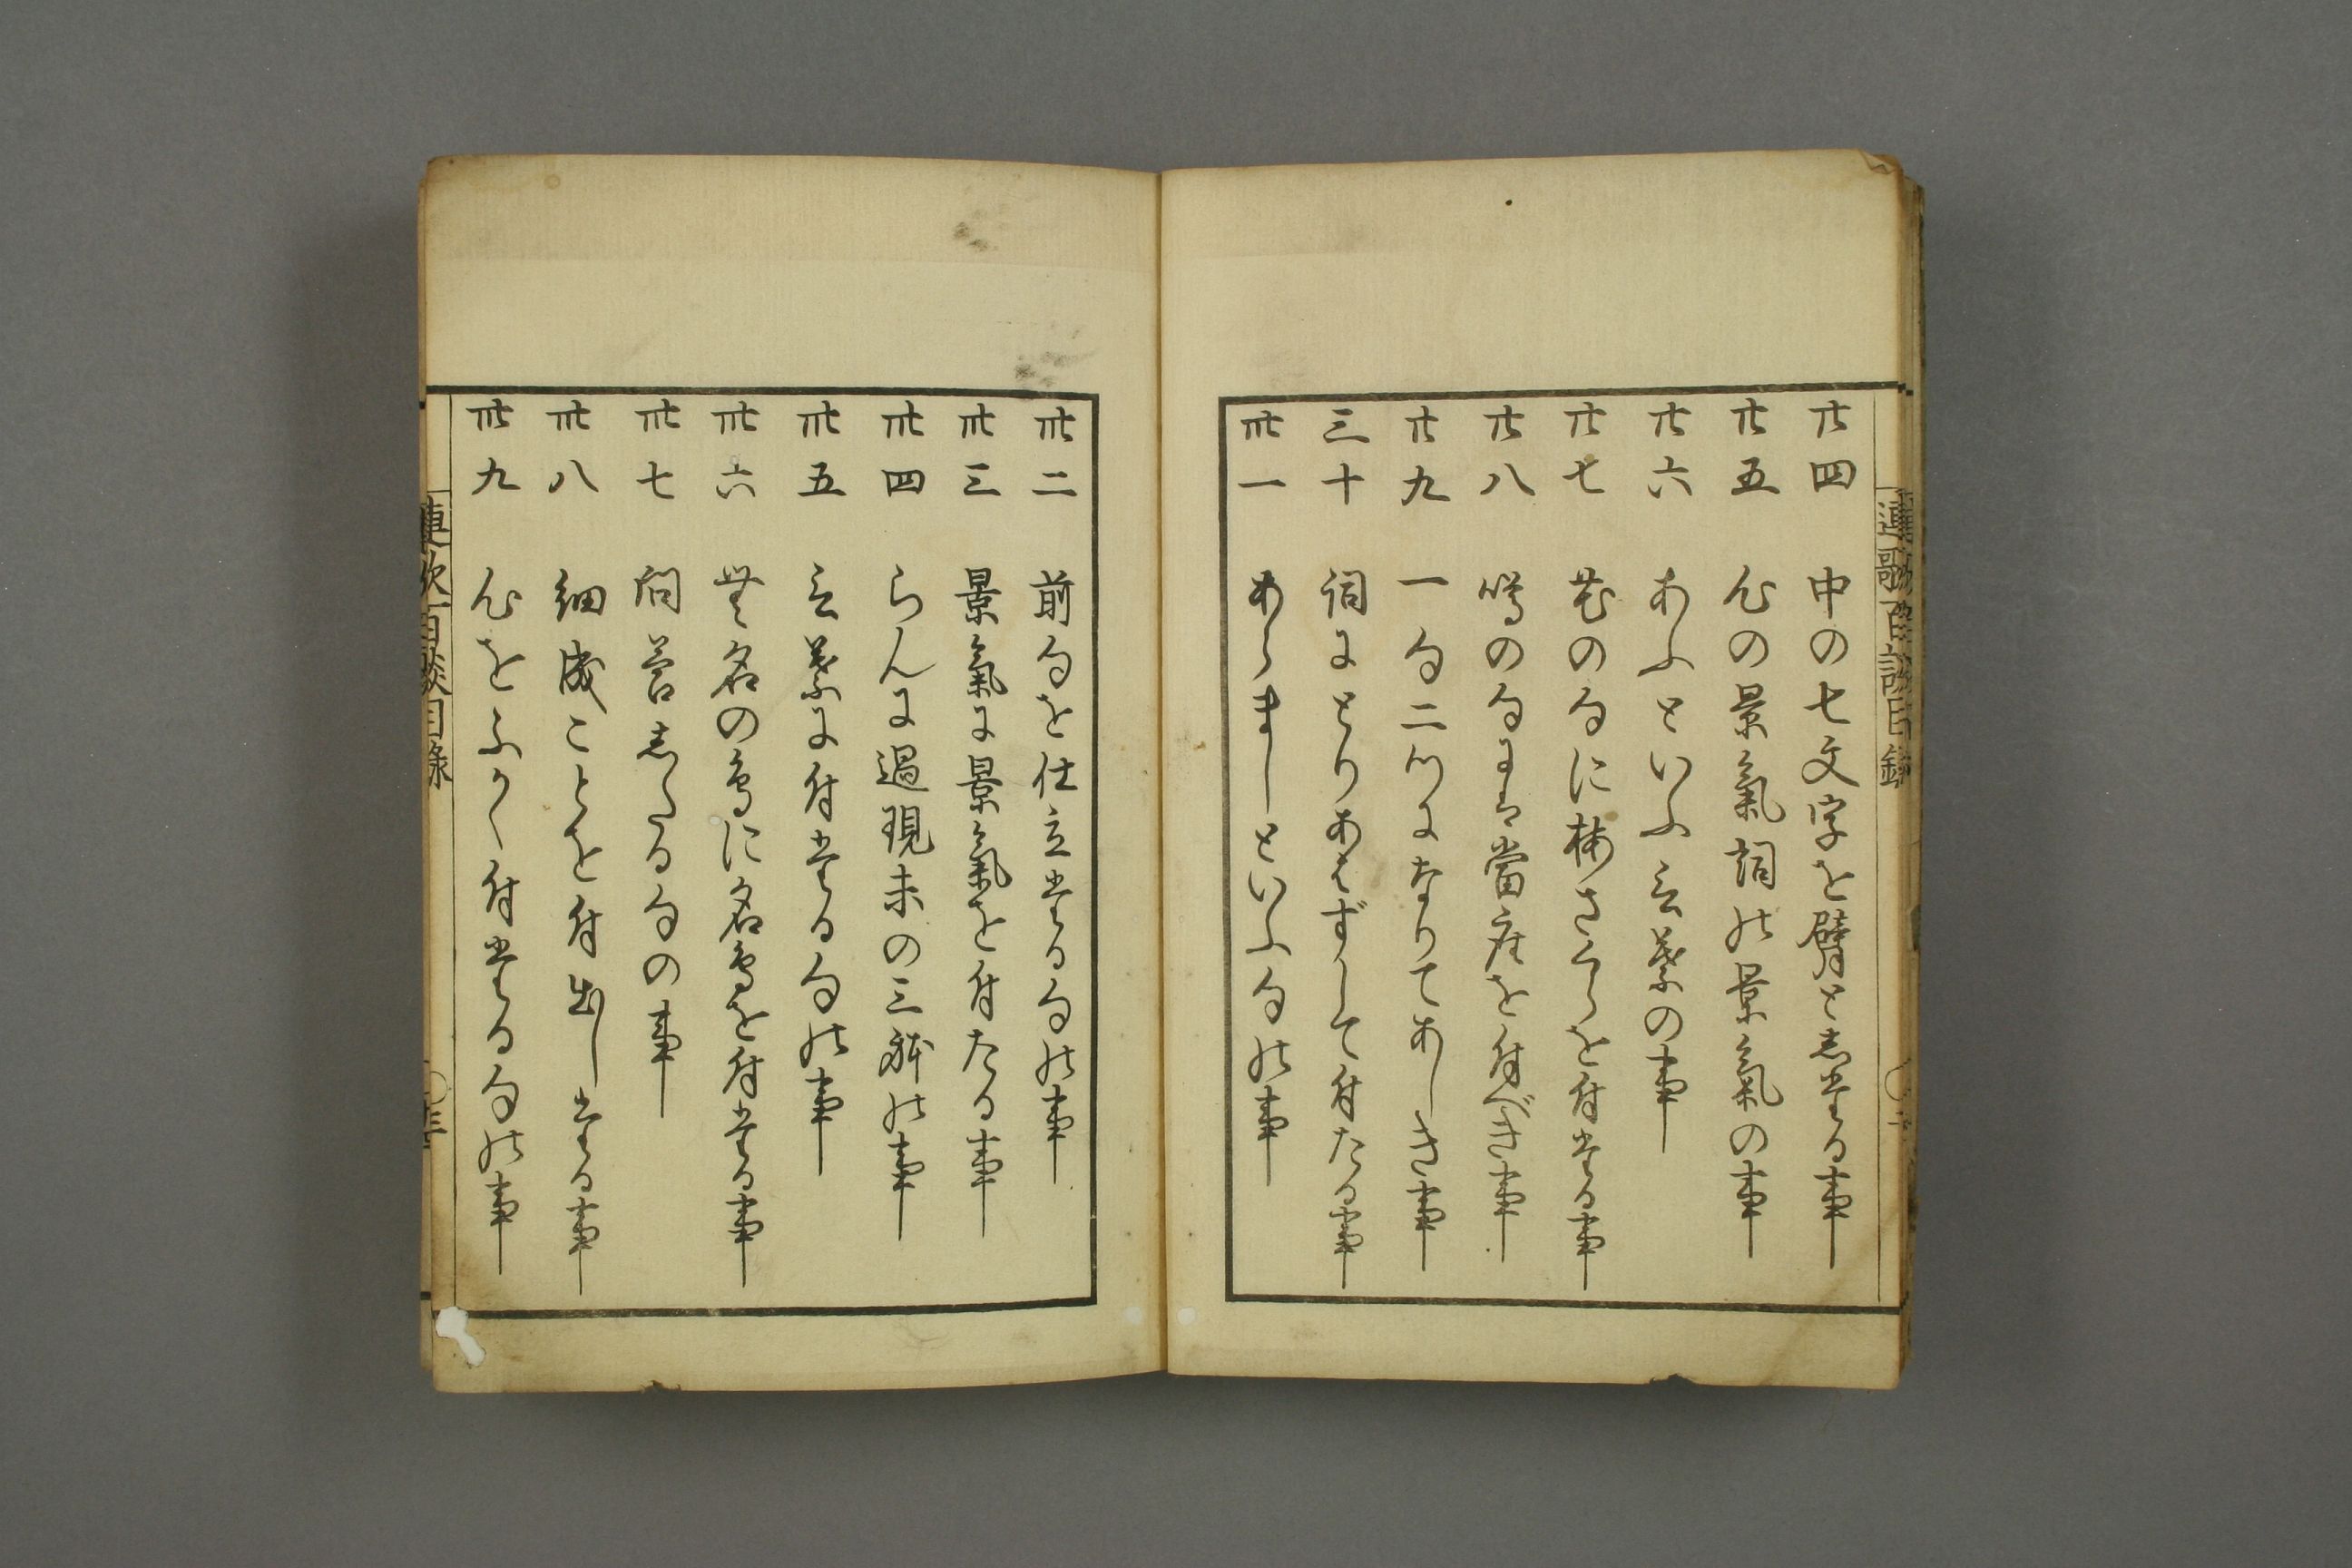 連歌百談目録
廿四 中の七文字を臂としたる事
廿五 心の景氣詞の景氣の事
廿六 あふといふ言葉の事
廿七 花の句に梅さくらを付たる事
廿八 鳴の句には當座を付べき事
廿九 一句二つになりてあしき事
三十 詞にとりあはずして付たる事
卅一 あらましといふ句の事
卅二 前句を仕立たる句の事
卅三 景氣に景氣を付たる事
卅四 らんに過現未の三躰の事
卅五 言葉に付たる句の事
卅六 無名の鳥に名鳥を付たる事
卅七 問答したる句の事
卅八 細成ことを付出したる事
卅九 心をふかく付たる句の事
連歌百談目録 〇三